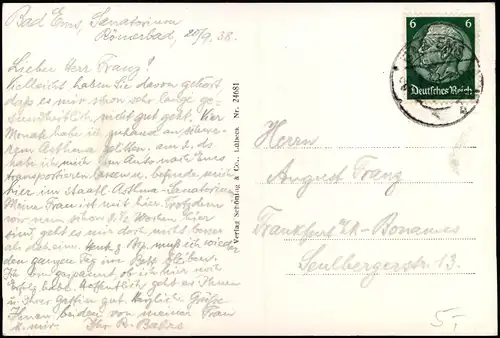 Bad Ems, Sanatorium
Römerbad, 20/9. 38.
Lieber Herr Franz!
Vielleicht haben Sie davon gehört
daß es mir schon sehr lange ge-
sundheitlich nicht gut geht. Vier
Monate habe ich zuhause an schwe-
rem Asthma gelitten. am 2. ds
habe ich mich per Auto nach Ems
transportieren lassen u. befinde mich
hier im Staatl. Asthma-Sanatorium
Meine Frau ist mit hier. Trotzdem
wir nun schon 2 ½ Wochen hier
sind, geht es mir doch nicht besser
als daheim. Heute z. Bsp. muß ich wieder
den ganzen Tag im Bett bleiben.
Bin gespannt, ob ich hier noch
Erfolg habe. Hoffentlich geht es Ihnen
u. Ihrer Gattin gut. Herzliche Grüße
Ihnen beiden von meiner Frau
u. mir. Ihr R.
Verlag Schöning & Co., Lübeck. Nr. 24681
6 6
Deutsches Reich
Herrn
August Franz
Frankfurt /M-Bonames
Seulbergerstr. 13.
5,-